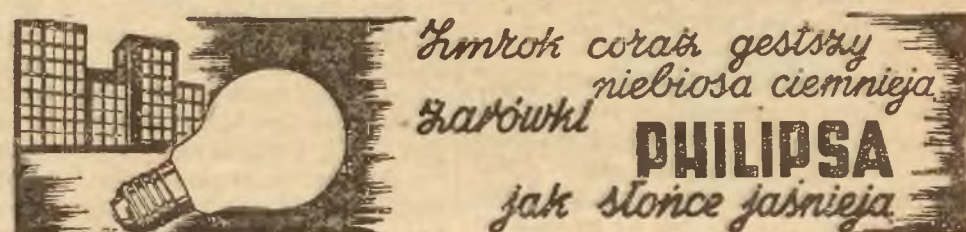 Zmrok coraz gęstszy
niebiosa ciemnieją
żarówki
PHILIPSA
jak słońce jaśnieją